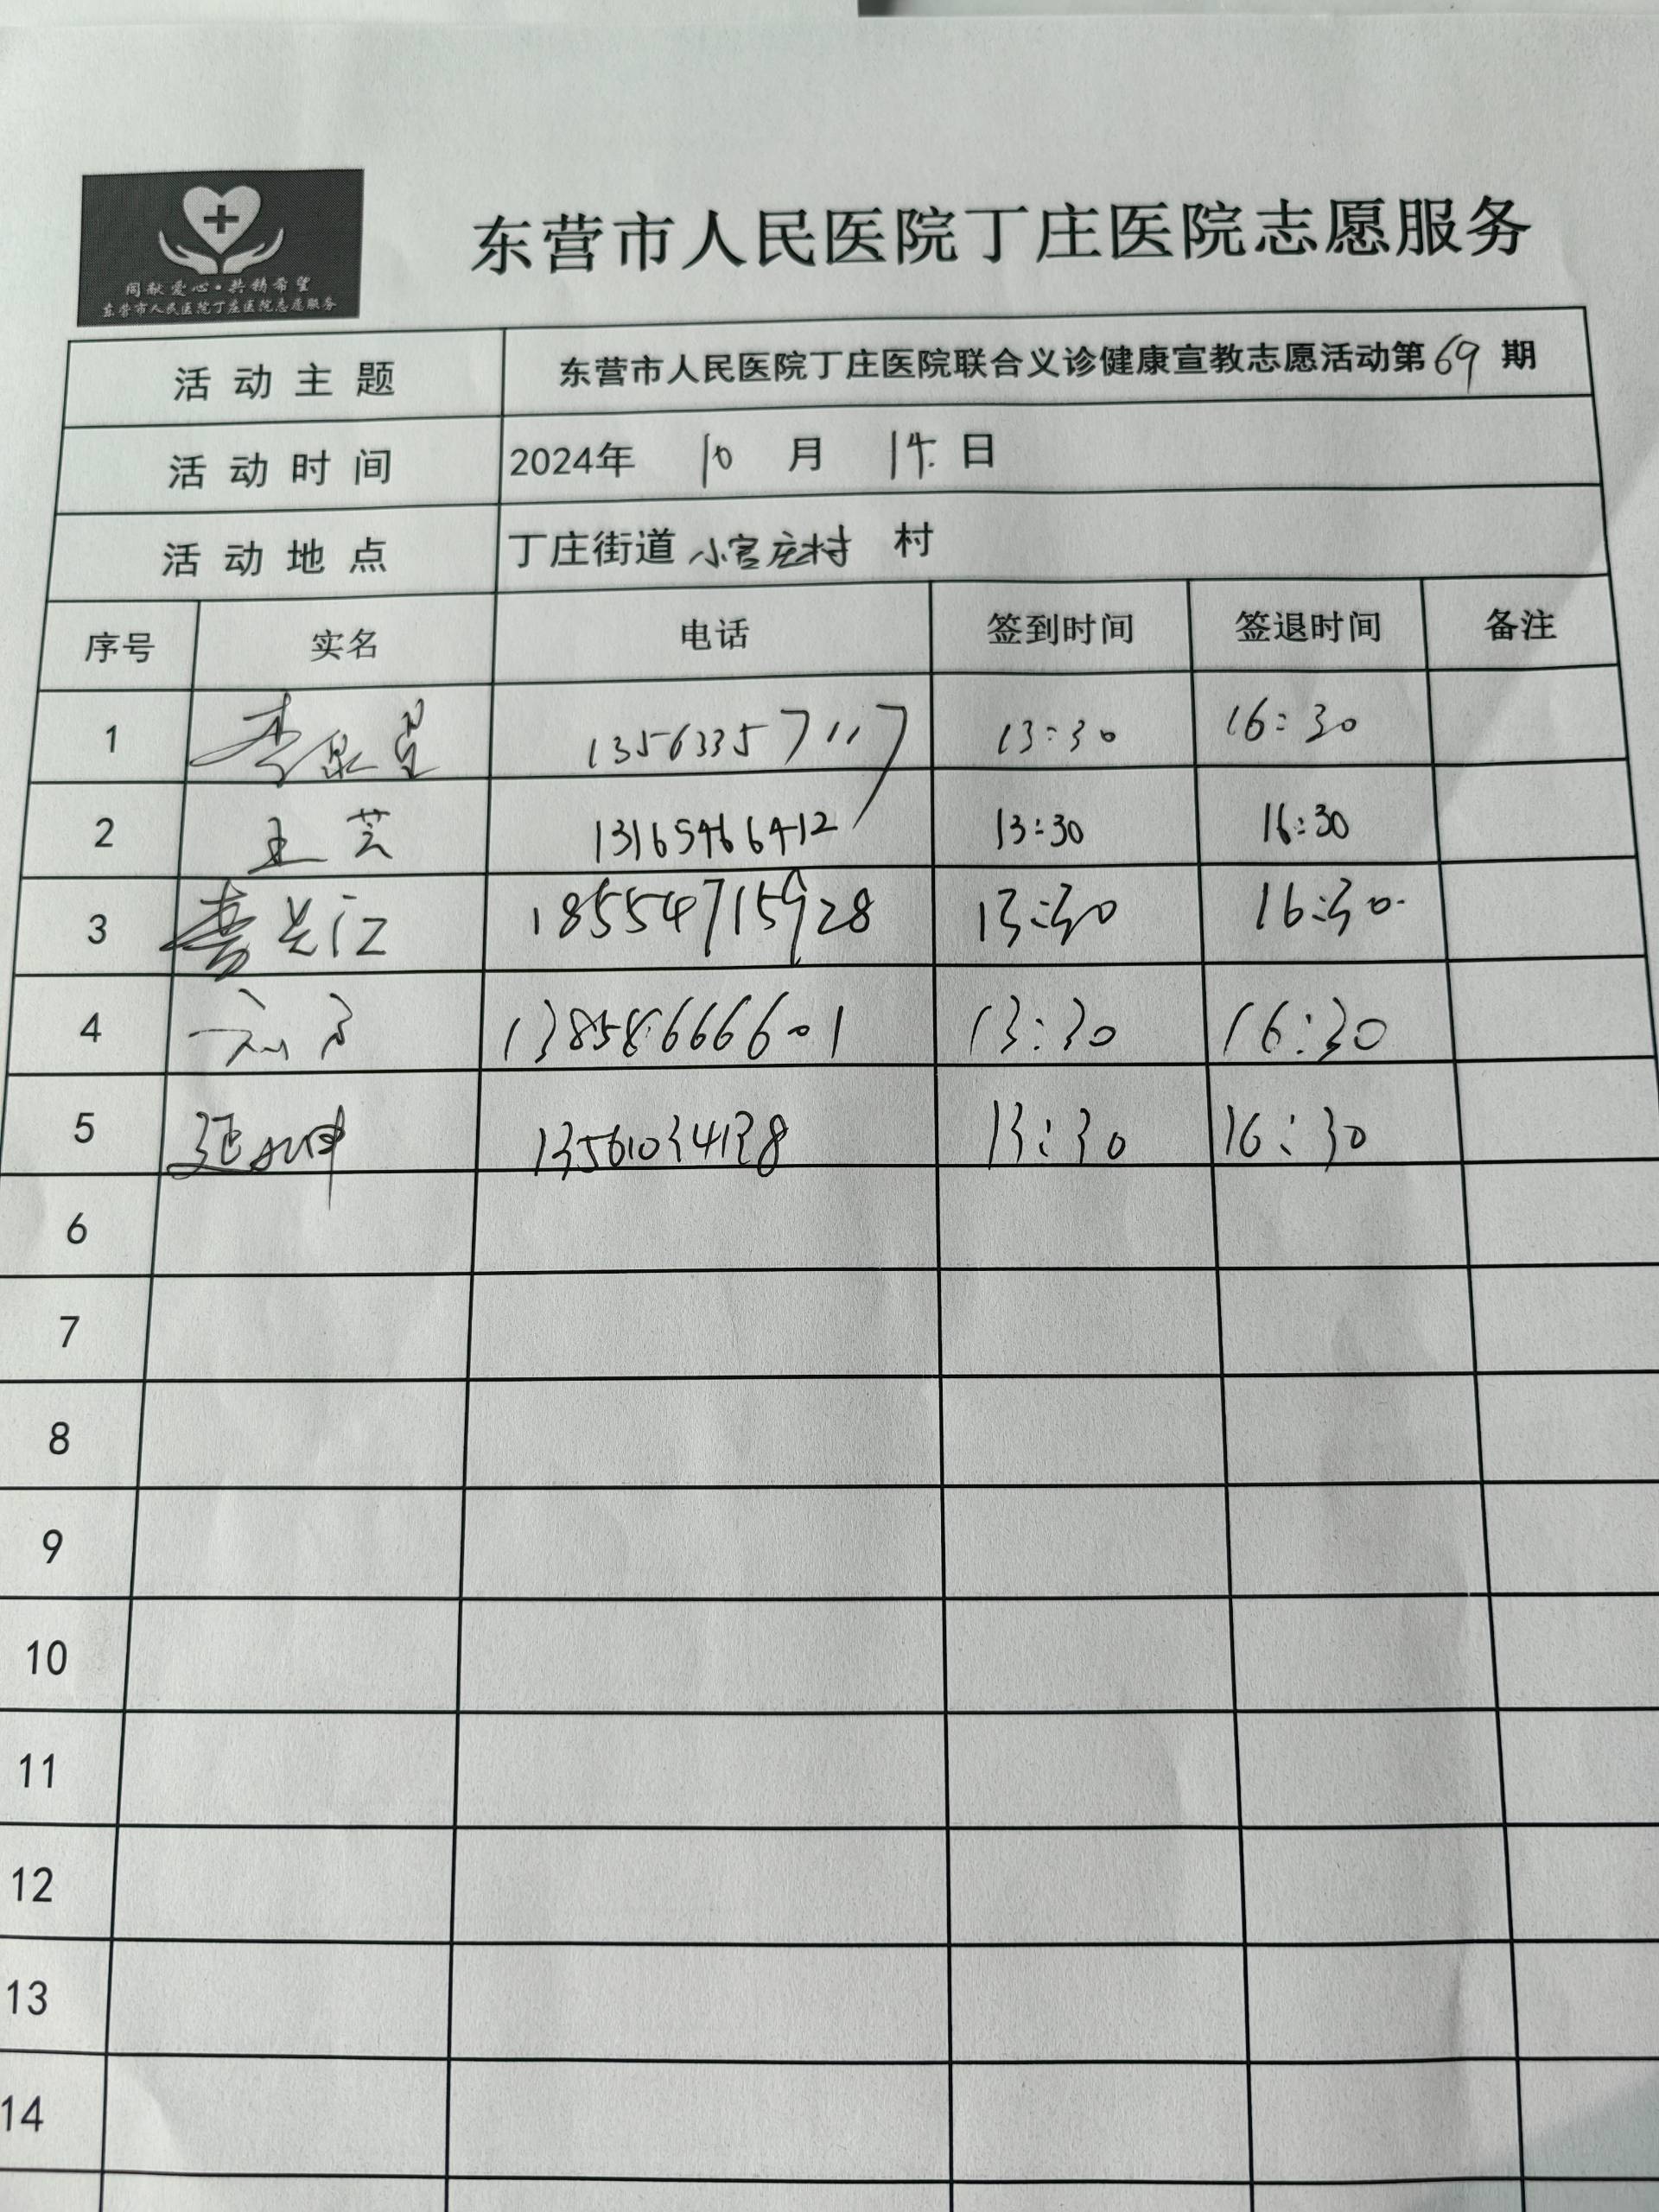 同献爱心·共铸希望
东营市人民医院丁庄医院志愿服务
东营市人民医院丁庄医院志愿服务
活动主题 东营市人民医院丁庄医院联合义诊健康宣教志愿活动第69期
活动时间 2024年 10 月 14 日
活动地点 丁庄街道 小官庄村 村
序号 实名 电话 签到时间 签退时间 备注
1 李 13563357117 13:30 16:30
2 王芸 13165466412 13:30 16:30
3 江 18554715928 13:30 16:30
4 13858666601 13:30 16:30
5 坤 13561034138 13:30 16:30
6
7
8
9
10
11
12
13
14